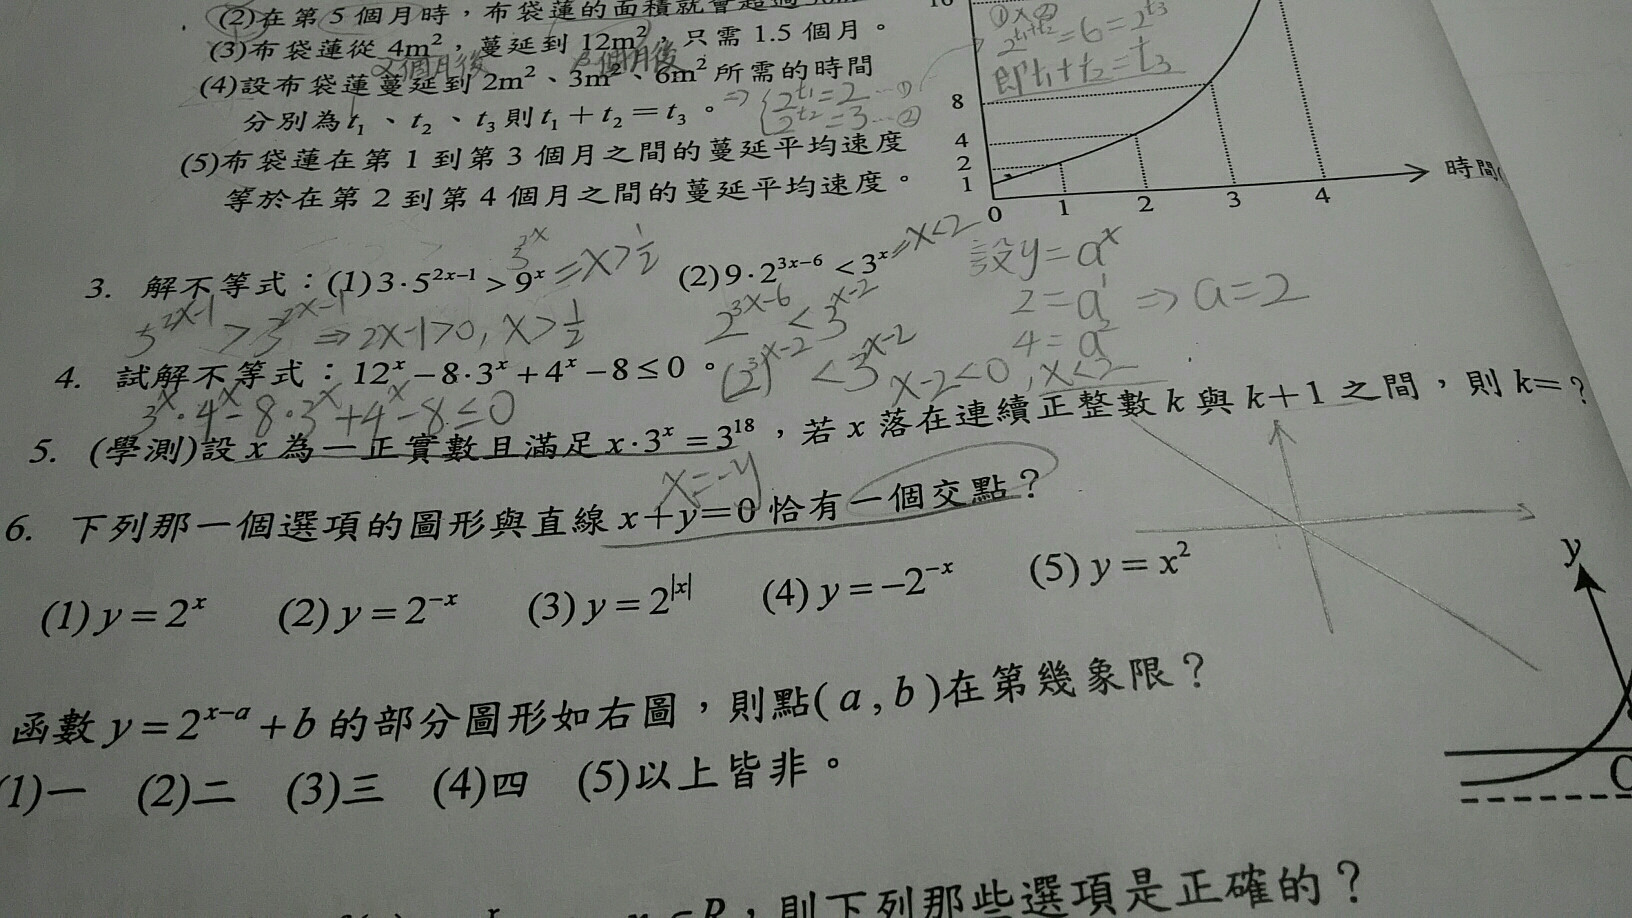 (2)在第 5 個月時，布袋蓮的面積就會超過
(3)布袋蓮從 4m²，蔓延到 12m²，只需 1.5 個月。
2個月後
(4)設布袋蓮蔓延到 2m²、3m²、6m² 所需的時間
分別為 t₁、t₂、t₃ 則 t₁ + t₂ = t₃。
⇒ { 2^t₁ = 2 …①
2^t₂ = 3 …②
2^(t₁+t₂) = 6 = 2^t₃
即 t₁ + t₂ = t₃
(5)布袋蓮在第 1 到第 3 個月之間的蔓延平均速度
等於在第 2 到第 4 個月之間的蔓延平均速度。
8
4
2
1
0 1 2 3 4
時間
設 y = a^x
2 = a^1 ⇒ a = 2
4 = a^2
3. 解不等式：(1) 3·5^(2x−1) > 9^x ⇒ x > 1/2 (2) 9·2^(3x−6) < 3^x ⇒ x < 2
5^(2x-1) > 3^(2x-1) ⇒ 2x-1>0, x > 1/2
2^(3x-6) < 3^(x-2)
(2^3)^(x-2) < 3^(x-2)
x-2<0, x<2
4. 試解不等式：12^x − 8·3^x + 4^x − 8 ≤ 0。
3^x·4^x - 8·3^x + 4^x - 8 ≤ 0
5. (學測)設 x 為一正實數且滿足 x·3^x = 3^18，若 x 落在連續正整數 k 與 k+1 之間，則 k=？
x=-y
6. 下列那一個選項的圖形與直線 x+y=0 恰有一個交點？
(1) y = 2^x (2) y = 2^−x (3) y = 2^|x| (4) y = −2^−x (5) y = x²
函數 y = 2^(x−a) + b 的部分圖形如右圖，則點( a , b )在第幾象限？
(1)一 (2)二 (3)三 (4)四 (5)以上皆非。
y
O
，則下列那些選項是正確的？